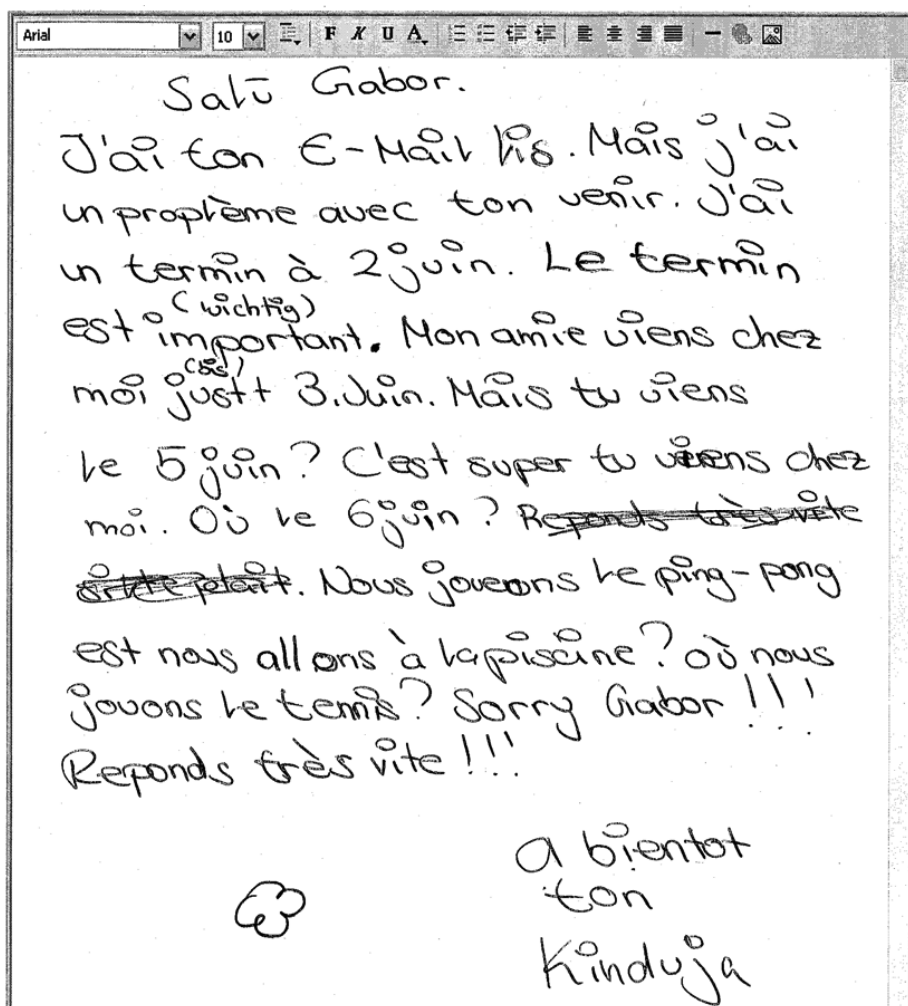 Arial 10 F K U A
Salū Gabor.
J'ai ton E-Mail lis. Mais j'ai
un proplème avec ton venir. J'ai
un termin à 2 juin. Le termin
(wichtig)
est important. Mon amie viens chez
(bis)
moi justt 3. Juin. Mais tu viens
le 5 juin? C'est super tu viens chez
moi. Où le 6 juin? Reponds très vite
. Nous joueons le ping-pong
est nous allons à la piscine? où nous
jouons le tennis? Sorry Gabor!!!
Reponds très vite!!!
a bientot
ton
Kinduja